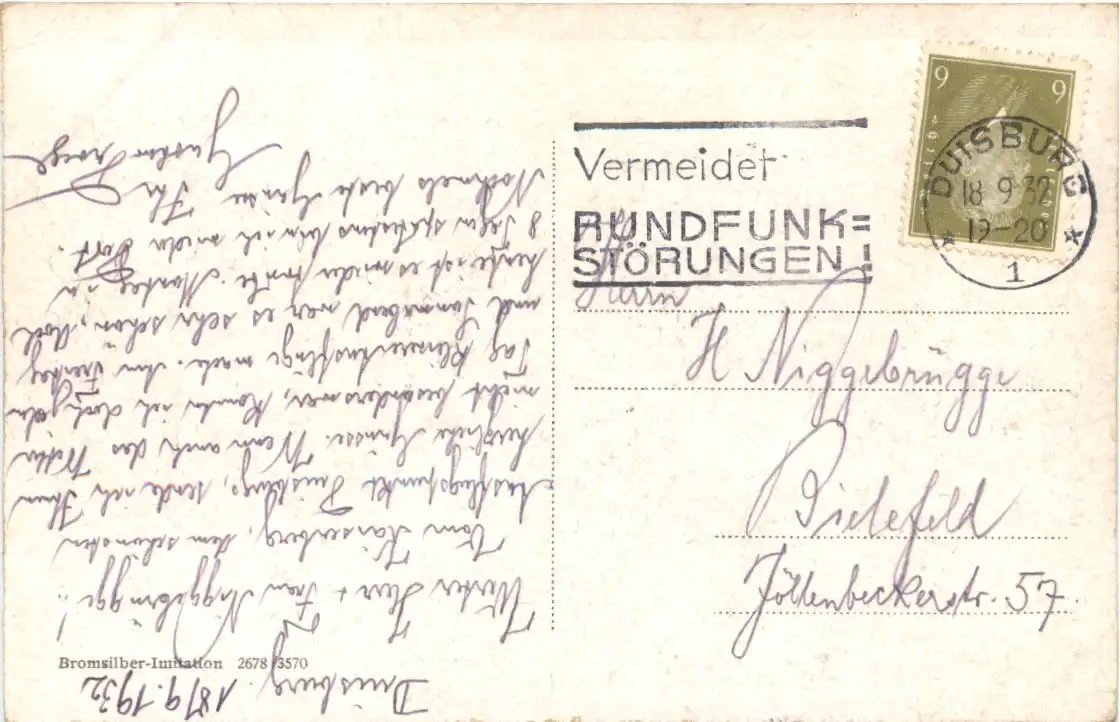 Duisburg. 18/9. 1932
Werter Herr + Frau Niggebrügge!
Vom Kaiserberg, dem schönsten
Ausflugspunkt Duisburgs, sende ich Ihnen
herzliche Grüsse. Wenn auch das Wetter
nicht besonders war, konnte ich doch jeden
Tag kleinere Ausflüge machen. Am Freitag
und Sonnabend war es sehr schön,
heute ist es wieder trübe. Montag in
8 Tagen spätestens bin ich wieder dort.
Nochmals beste Grüsse Ihr
Gustav
Bromsilber-Imitation 2678/3570
Vermeidet
RUNDFUNK=
STÖRUNGEN!
9 9
DUISBURG
18 9·32
19-20
1
Herrn
H Niggebrügge
Bielefeld
Jöllenbeckerstr. 57.